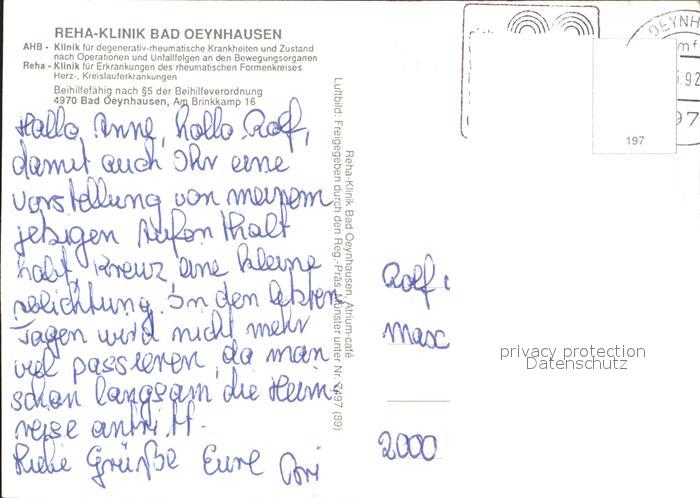 REHA-KLINIK BAD OEYNHAUSEN
AHB - Klinik für degenerativ-rheumatische Krankheiten und Zustand
nach Operationen und Unfallfolgen an den Bewegungsorganen
Reha - Klinik für Erkrankungen des rheumatischen Formenkreises
Herz-, Kreislauferkrankungen
Beihilfefähig nach §5 der Beihilfeverordnung
4970 Bad Oeynhausen, Am Brinkkamp 16
Hallo Anne, hallo Rolf,
damit auch Ihr eine
Vorstellung von meinem
jetzigen Aufenthalt
habt, kreuz eine kleine
In den letzten
Tagen wird nicht mehr
viel passieren, da man
schon langsam die Heim-
reise antritt.
Liebe Grüße Eure
Reha-Klinik Bad Oeynhausen, Atrium-café
Luftbild: Freigegeben durch den Reg.-Präs. Münster unter Nr. 7497 (89)
OEYNH
92
97
197
Rolf
Max
2000
privacy protection
Datenschutz